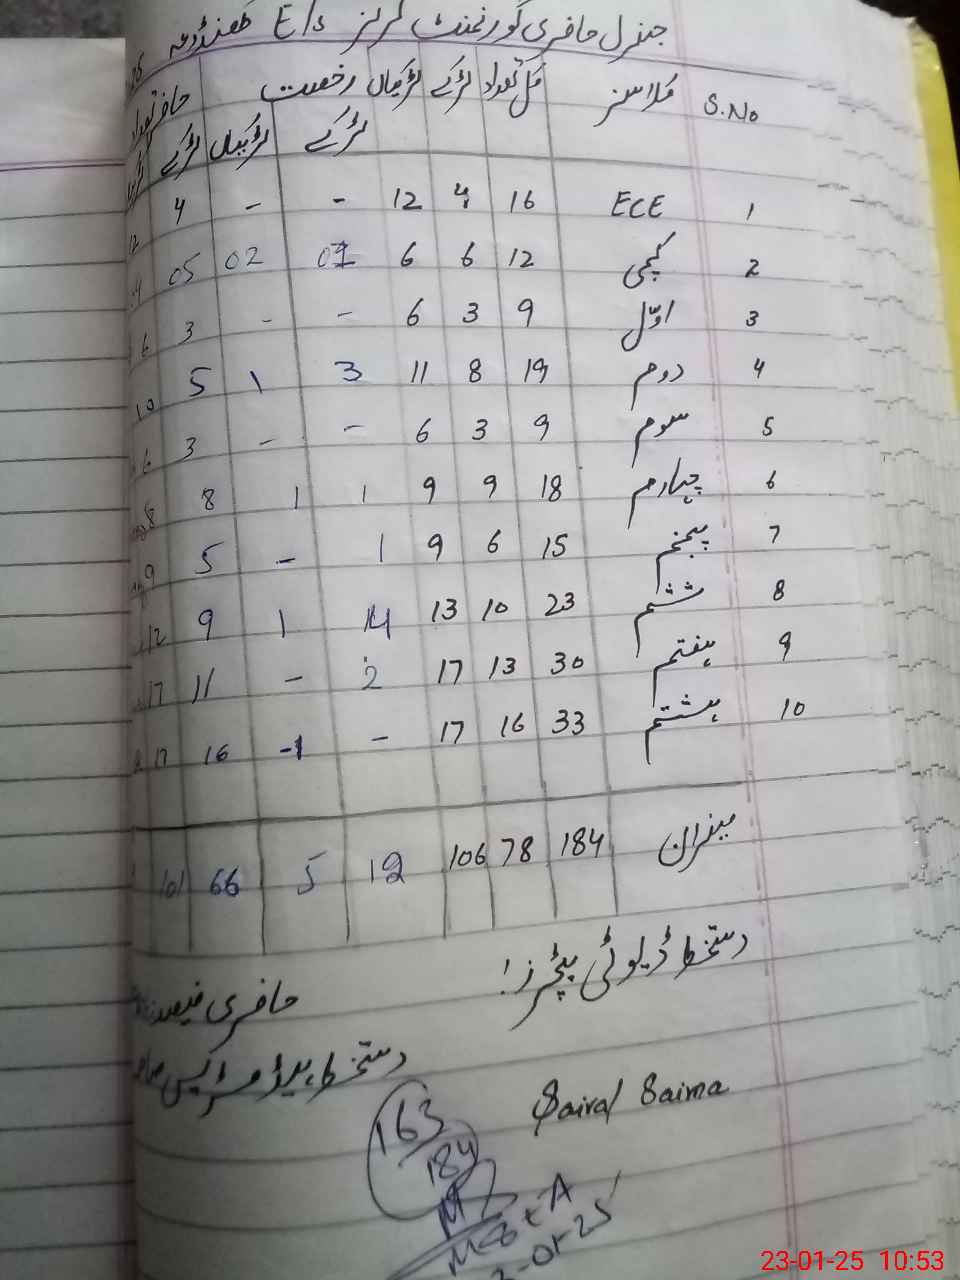 جنرل حاضری گورنمنٹ گرلز E/S
S.No کلاسز کل تعداد لڑکے لڑکیاں رخصت حاضر تعداد
لڑکے لڑکیاں لڑکے
1 ECE 16 4 12 - - 4 12
2 کچی 12 6 6 01 02 05
3 اوّل 9 3 6 - - 3 6
4 دوم 19 8 11 3 1 5 10
5 سوم 9 3 6 - - 3 6
6 چہارم 18 9 9 1 1 8 8
7 پنجم 15 6 9 1 - 5 9
8 ششم 23 10 13 1 9 12
9 ہفتم 30 13 17 2 - 11 17
10 ہشتم 33 16 17 - -1 16 17
میزان 184 78 106 12 5 66 101
دستخط ڈیوٹی ٹیچرز!
حاضری فیصد
دستخط ہیڈ مسٹریس
Saira/ Saima
163
184
23-01-25 10:53